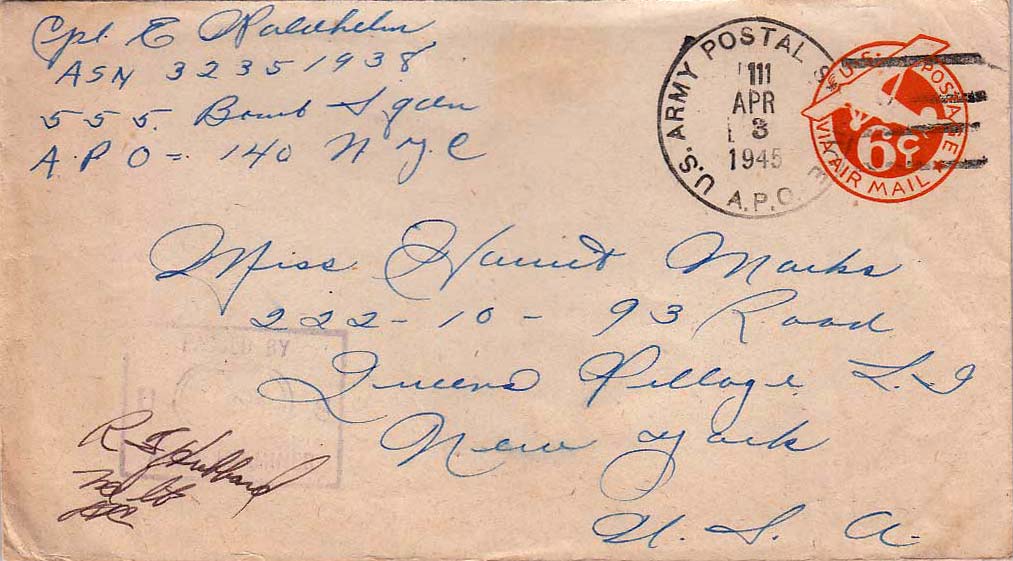 Cpl. E Waldhelm
ASN 32351938
555 Bomb Sqdn
A.P.O - 140 N.Y.C
U.S. ARMY POSTAL S
111
APR
3
1945
A.P.O.
U.S. POSTAGE
6¢
VIA AIR MAIL
Miss Harriet Marks
222-10-93 Road
Queens Village L.I
New York
U.S.A.
PASSED BY
R Hubbard